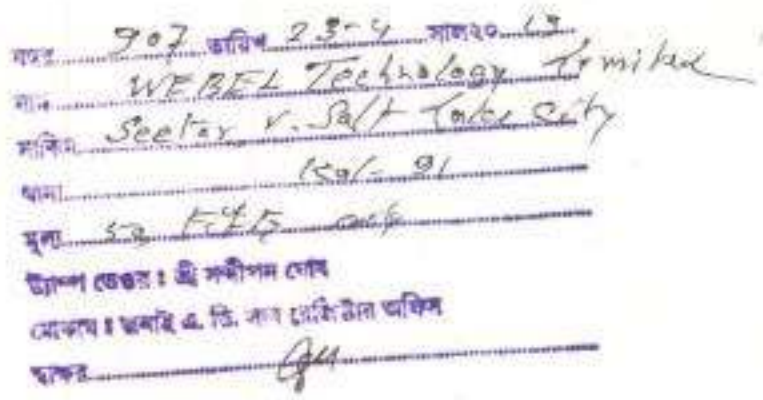 নম্বর 907 তারিখ 23-4 সাল২০ 19
নাম WEBEL Technology Limited
সাকিন Sector V. Salt Lake City
থানা Kol- 91
মূল্য 50 Fifty only
ষ্ট্যাম্প ভেণ্ডর : শ্রী সন্দীপন ঘোষ
মোকাম : এ. ডি. সাব রেজিষ্টার অফিস
স্বাক্ষর